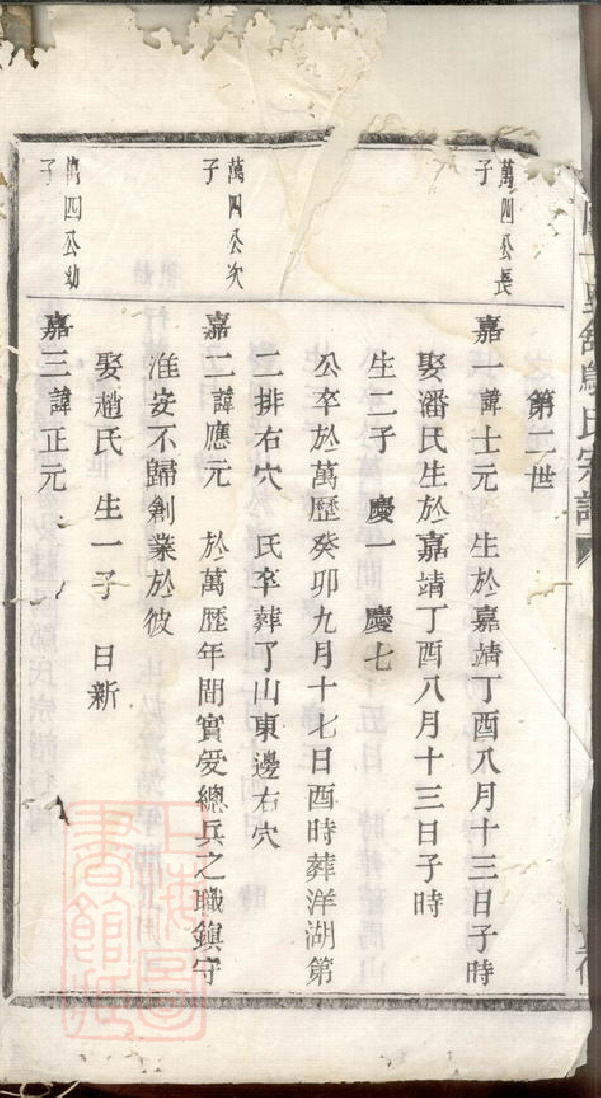 第二世
萬四公長
子
嘉一諱士元 生於嘉靖丁酉八月十三日子時
娶潘氏生於嘉靖丁酉八月十三日子時
生二子 慶一 慶七
公卒於萬歷癸卯九月十七日酉時葬洋湖第
二排右穴 氏卒葬了山東邊右穴
萬四公次
子
嘉二諱應元 於萬歷年間實爱總兵之職鎮守
淮安不歸創業於彼
娶趙氏 生一子 日新
萬四公幼
子
嘉三諱正元
氏宗譜
上海圖書館藏